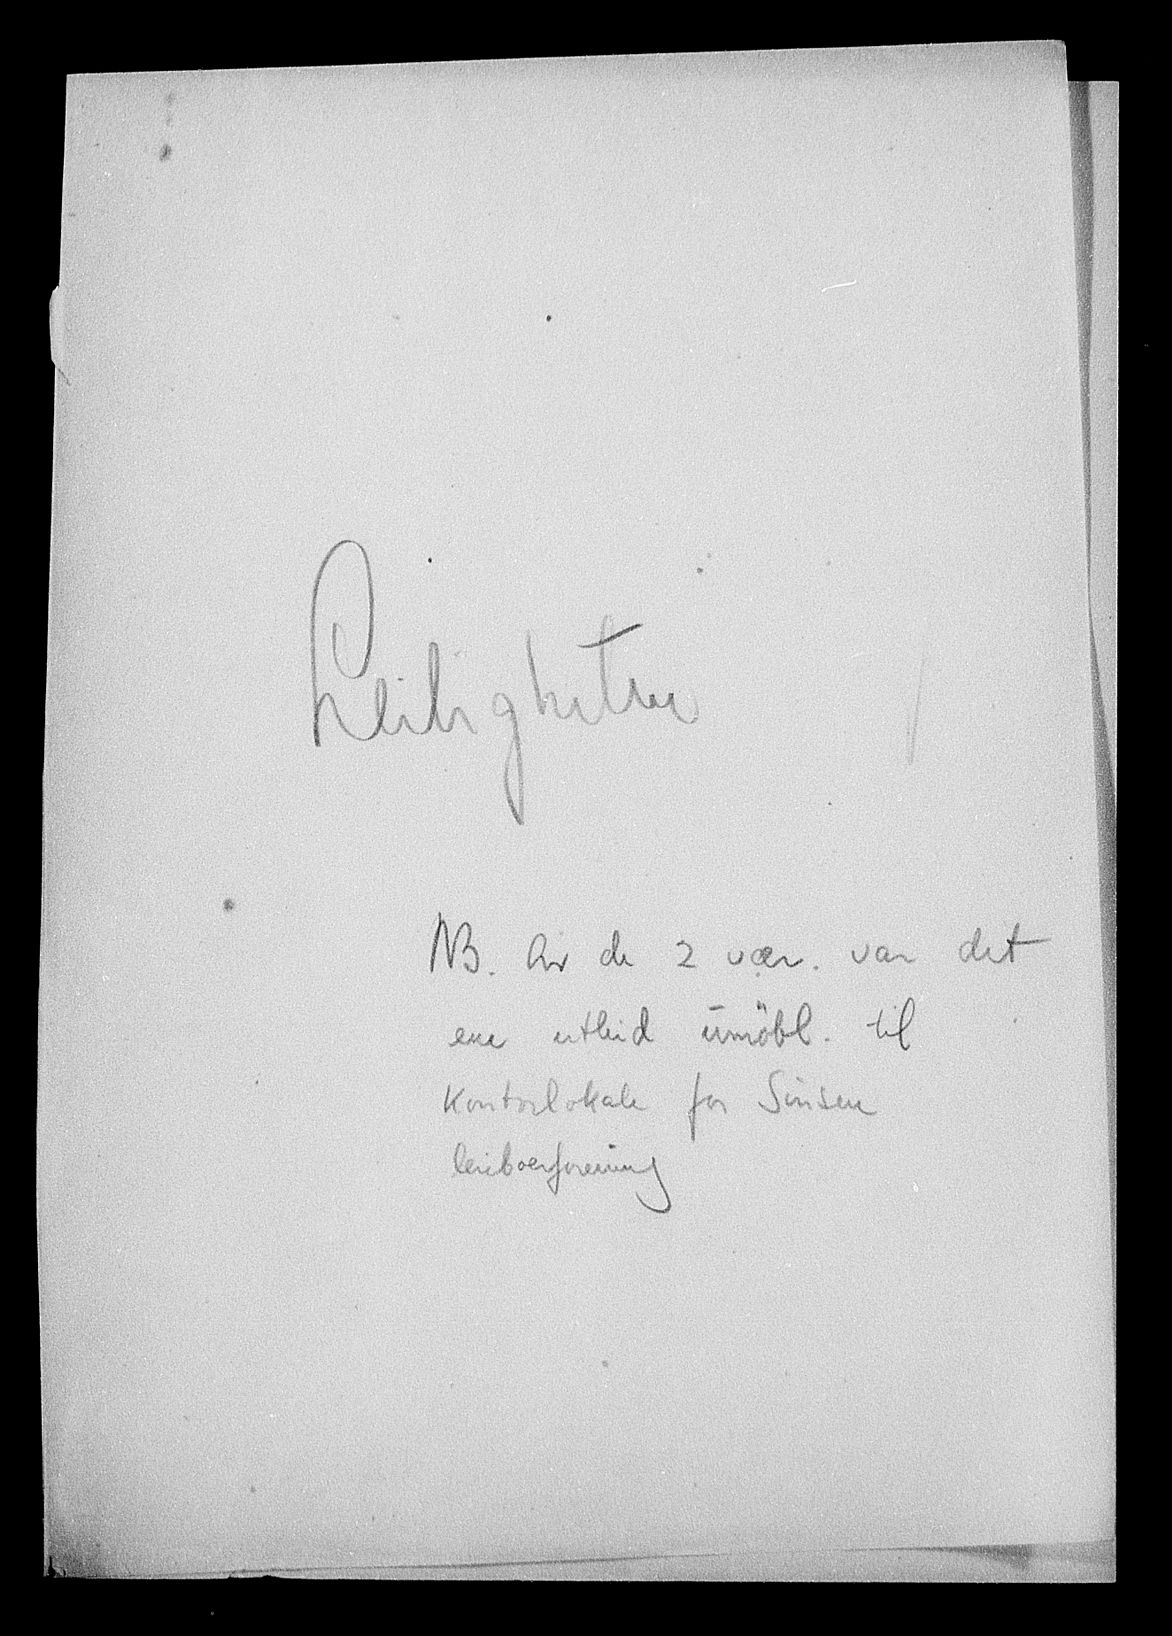 Leiligheten
NB. Av de 2 vær. var det
ene utleid umöbl. til
Kontorlokale for Sinsen
leieboerforening